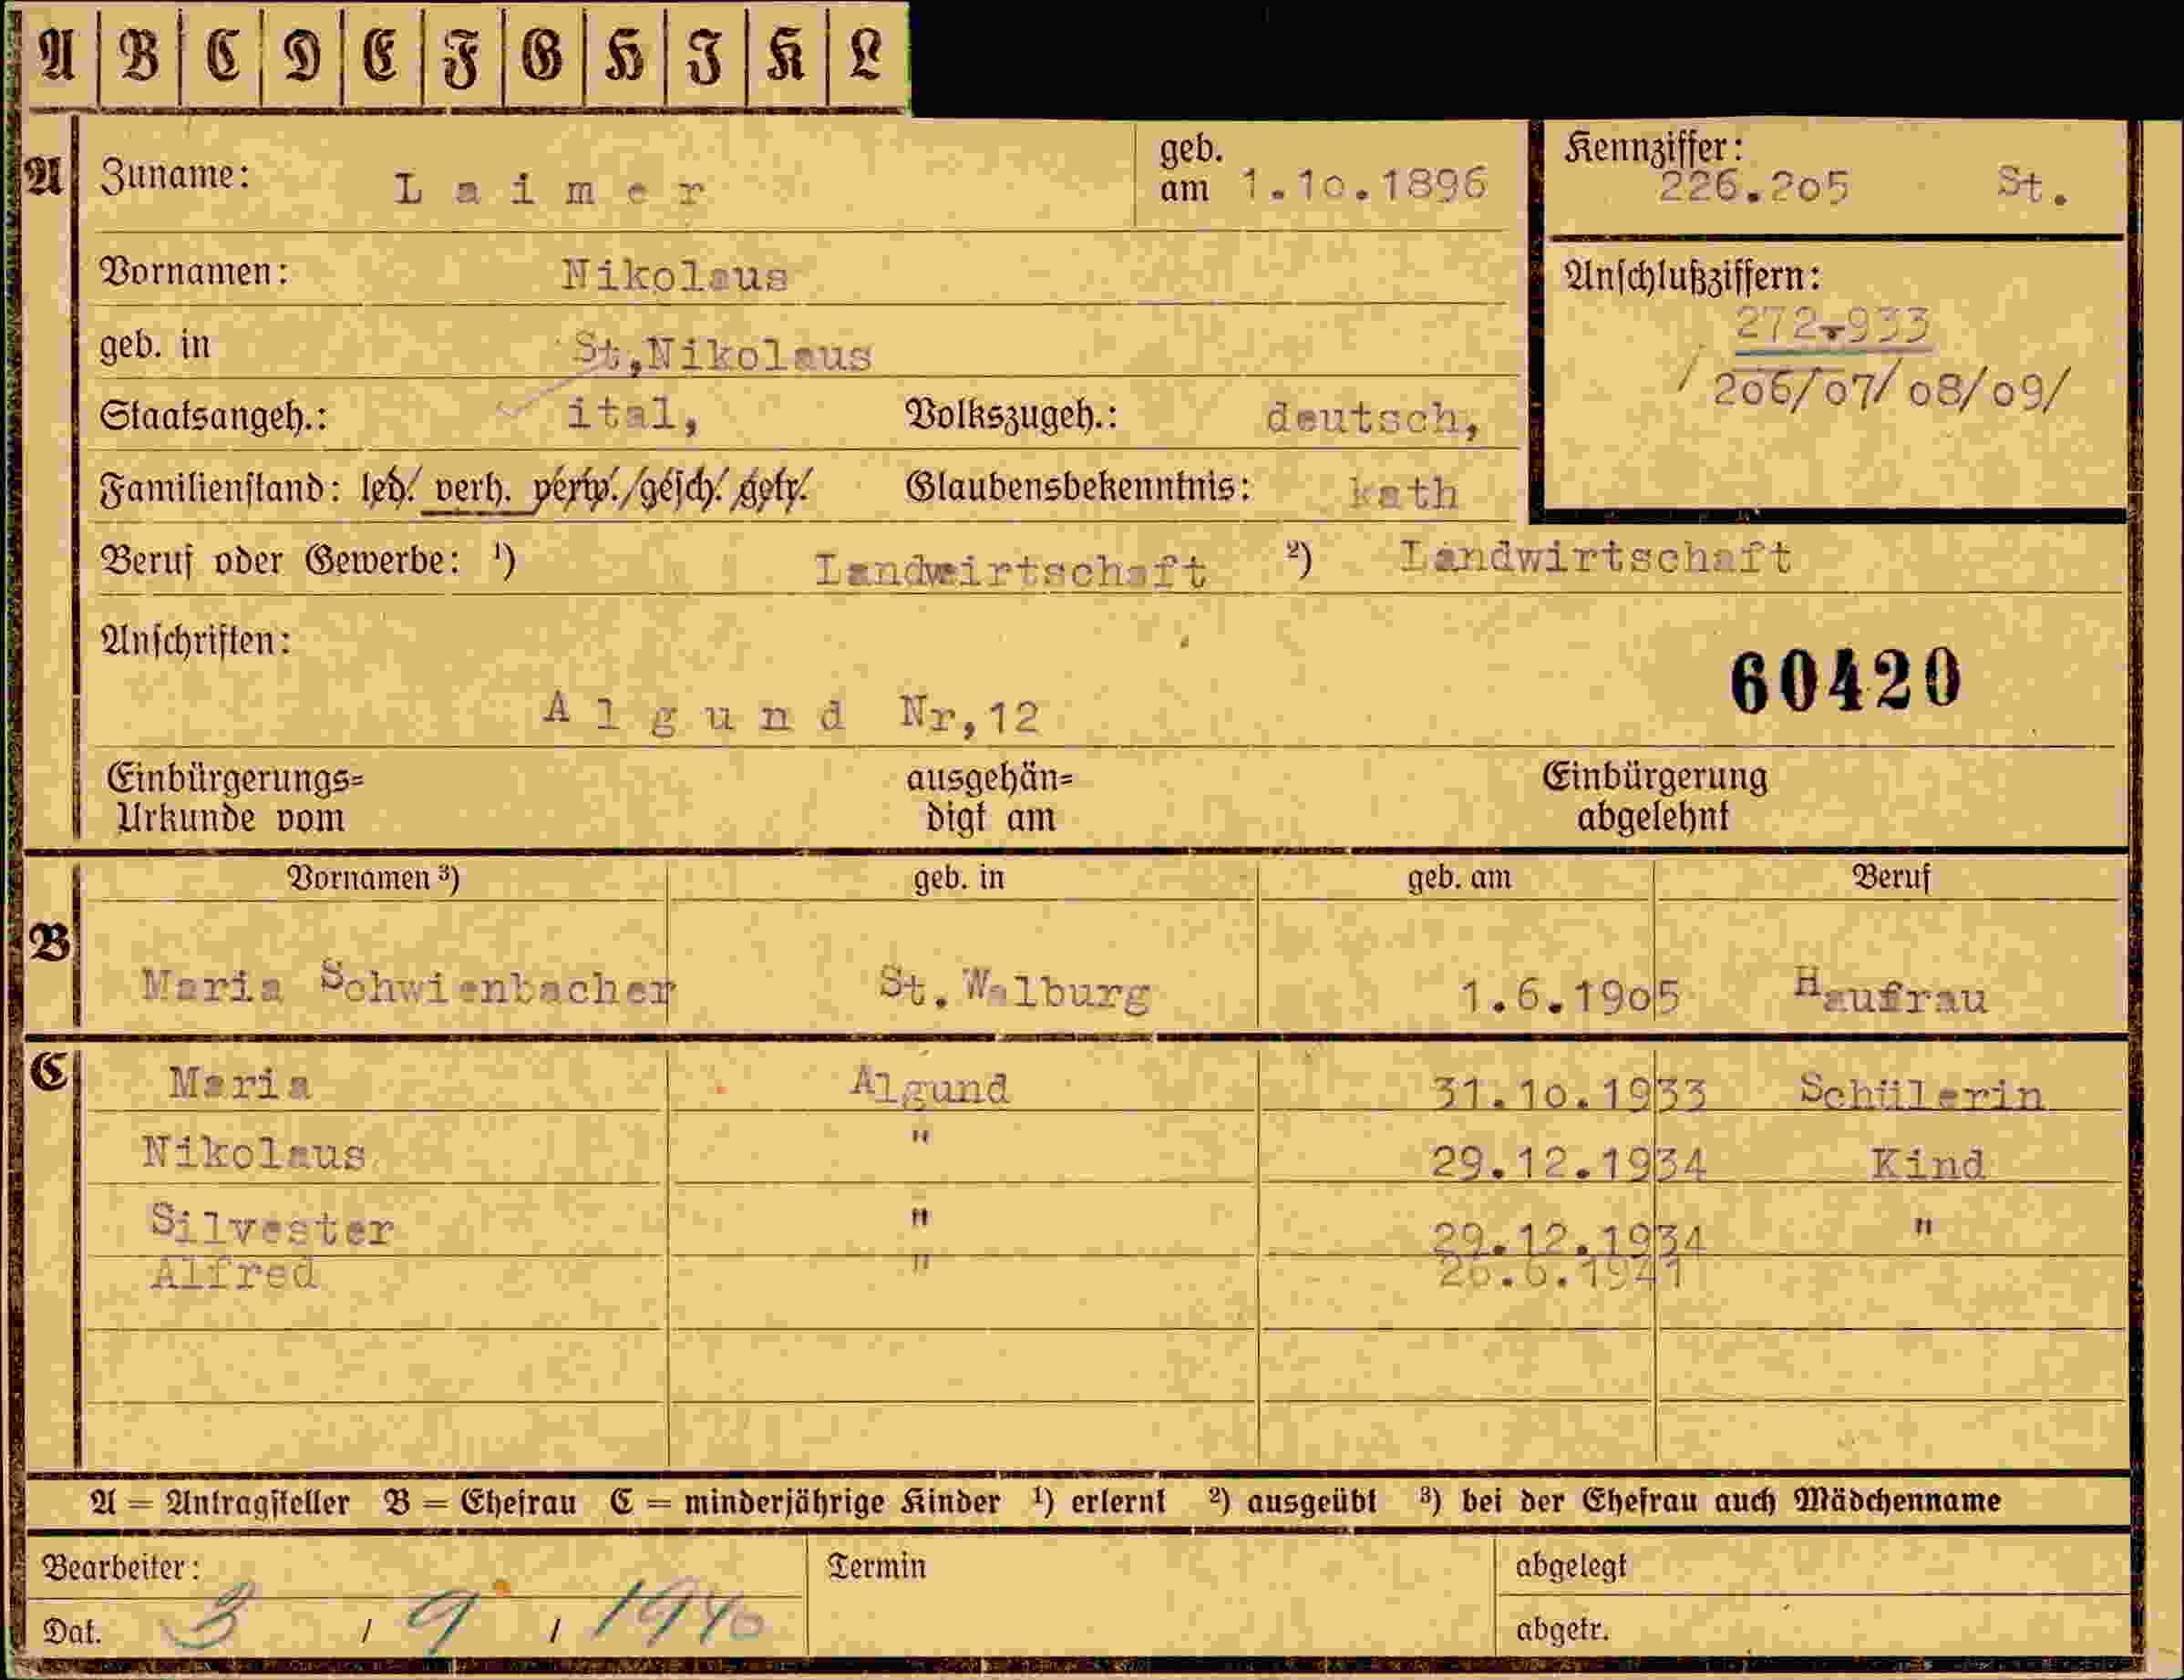 A B C D E F G H I K L
A Zuname: Laimer geb. am 1.10.1896 Kennziffer: 226.205 St.
Vornamen: Nikolaus Anschlußziffern:
272.933
geb. in St,Nikolaus / 206/07/08/09/
Staatsangeh.: ital, Volkszugeh.: deutsch,
Familienstand: led. verh. verw. gesch. getr. Glaubensbekenntnis: kath
Beruf oder Gewerbe: ¹) Landwirtschaft ²) Landwirtschaft
Anschriften:
60420
Algund Nr,12
Einbürgerungs= ausgehän= Einbürgerung
Urkunde vom digt am abgelehnt
Vornamen ³) geb. in geb. am Beruf
B Maria Schwienbacher St. Walburg 1.6.1905 Haufrau
C Maria Algund 31.10.1933 Schülerin
Nikolaus " 29.12.1934 Kind
Silvester " 29.12.1934 "
Alfred " 26.6.1941
A = Antragsteller B = Ehefrau C = minderjährige Kinder ¹) erlernt ²) ausgeübt ³) bei der Ehefrau auch Mädchenname
Bearbeiter: Termin abgelegt
Dat. 3 / 9 / 1940 abgetr.